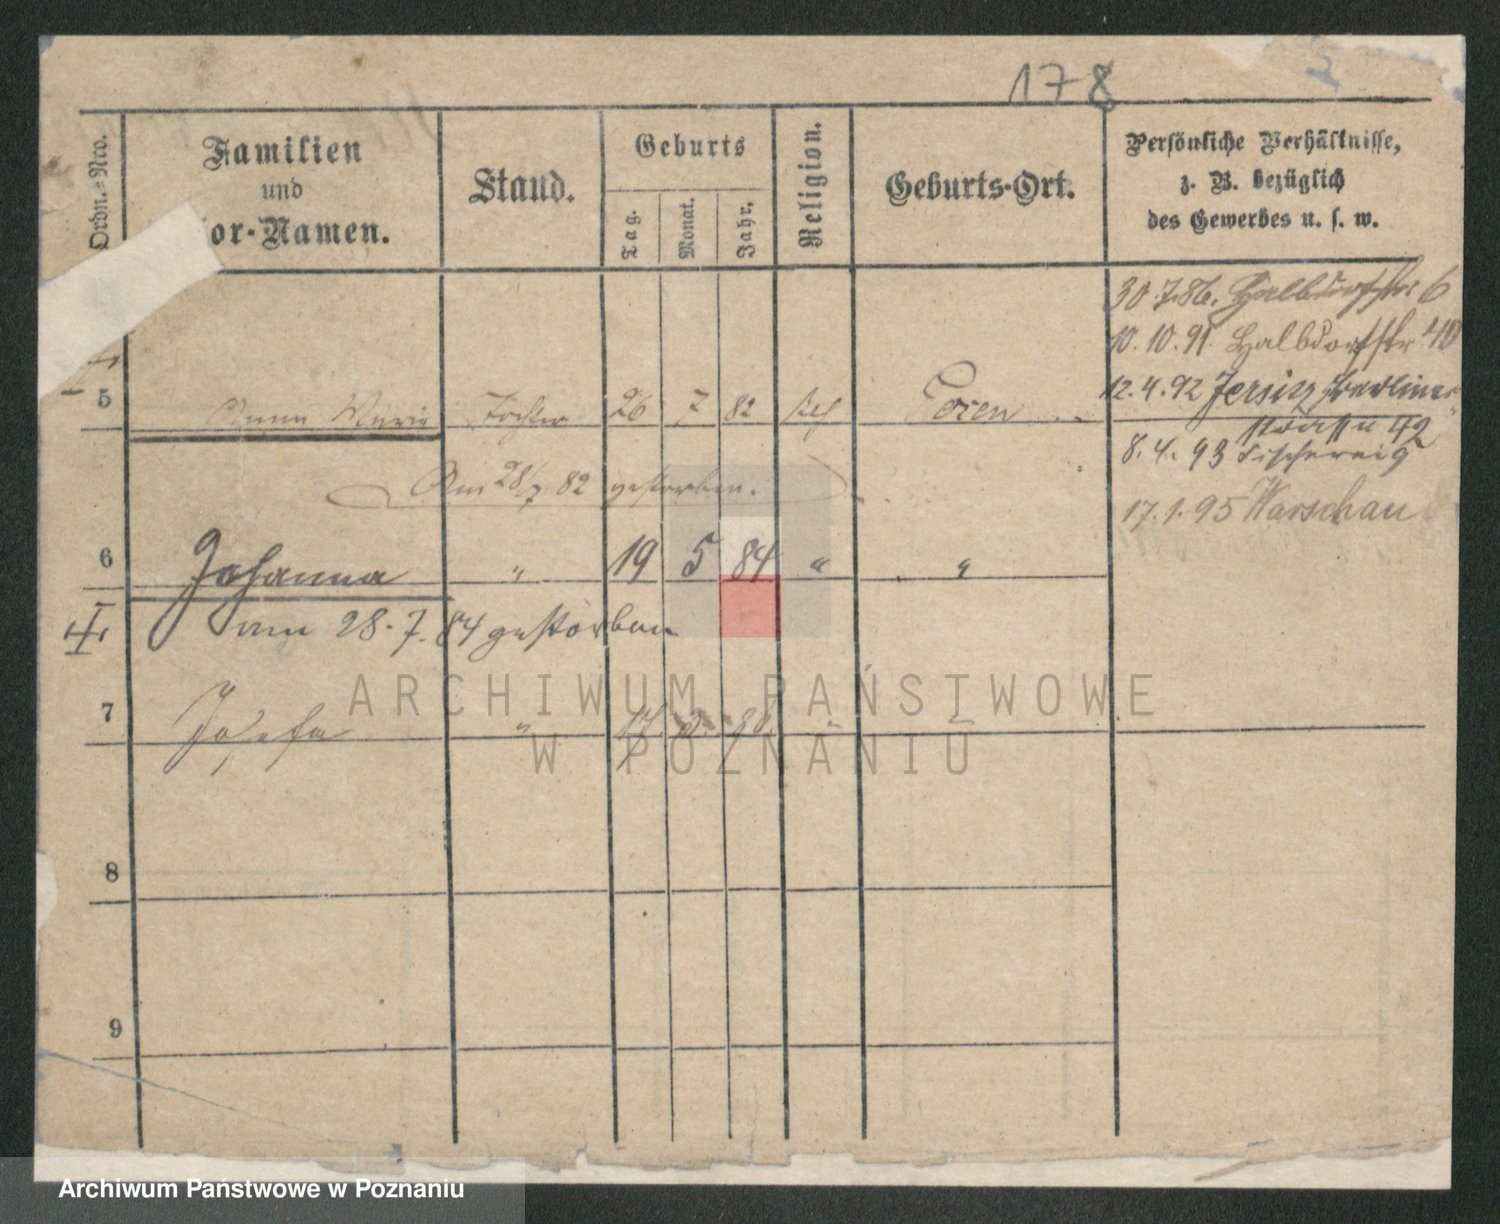 178
Ordn.=Nro.
Familien
und
or-Namen.
Stand.
Geburts
Tag.
Monat.
Jahr.
Religion.
Geburts-Ort.
Persönliche Verhältnisse,
z. B. bezüglich
des Gewerbes u. s. w.
30.7.86. Halbdorfstr 6
10.10.91. Halbdorfstr 40
12.4.92 Jersitz Berliner
strasse 42
8.4.93 Fischerei 9
17.1.95 Warschau
5 Marie Tochter 26 7 82 Posen
Am 28/7 82 gestorben.
6 Johanna " 19 5 84 " "
am 28.7.84 gestorben
7 Josefa " 17 " "
8
9
ARCHIWUM PAŃSTWOWE
W POZNANIU
Archiwum Państwowe w Poznaniu